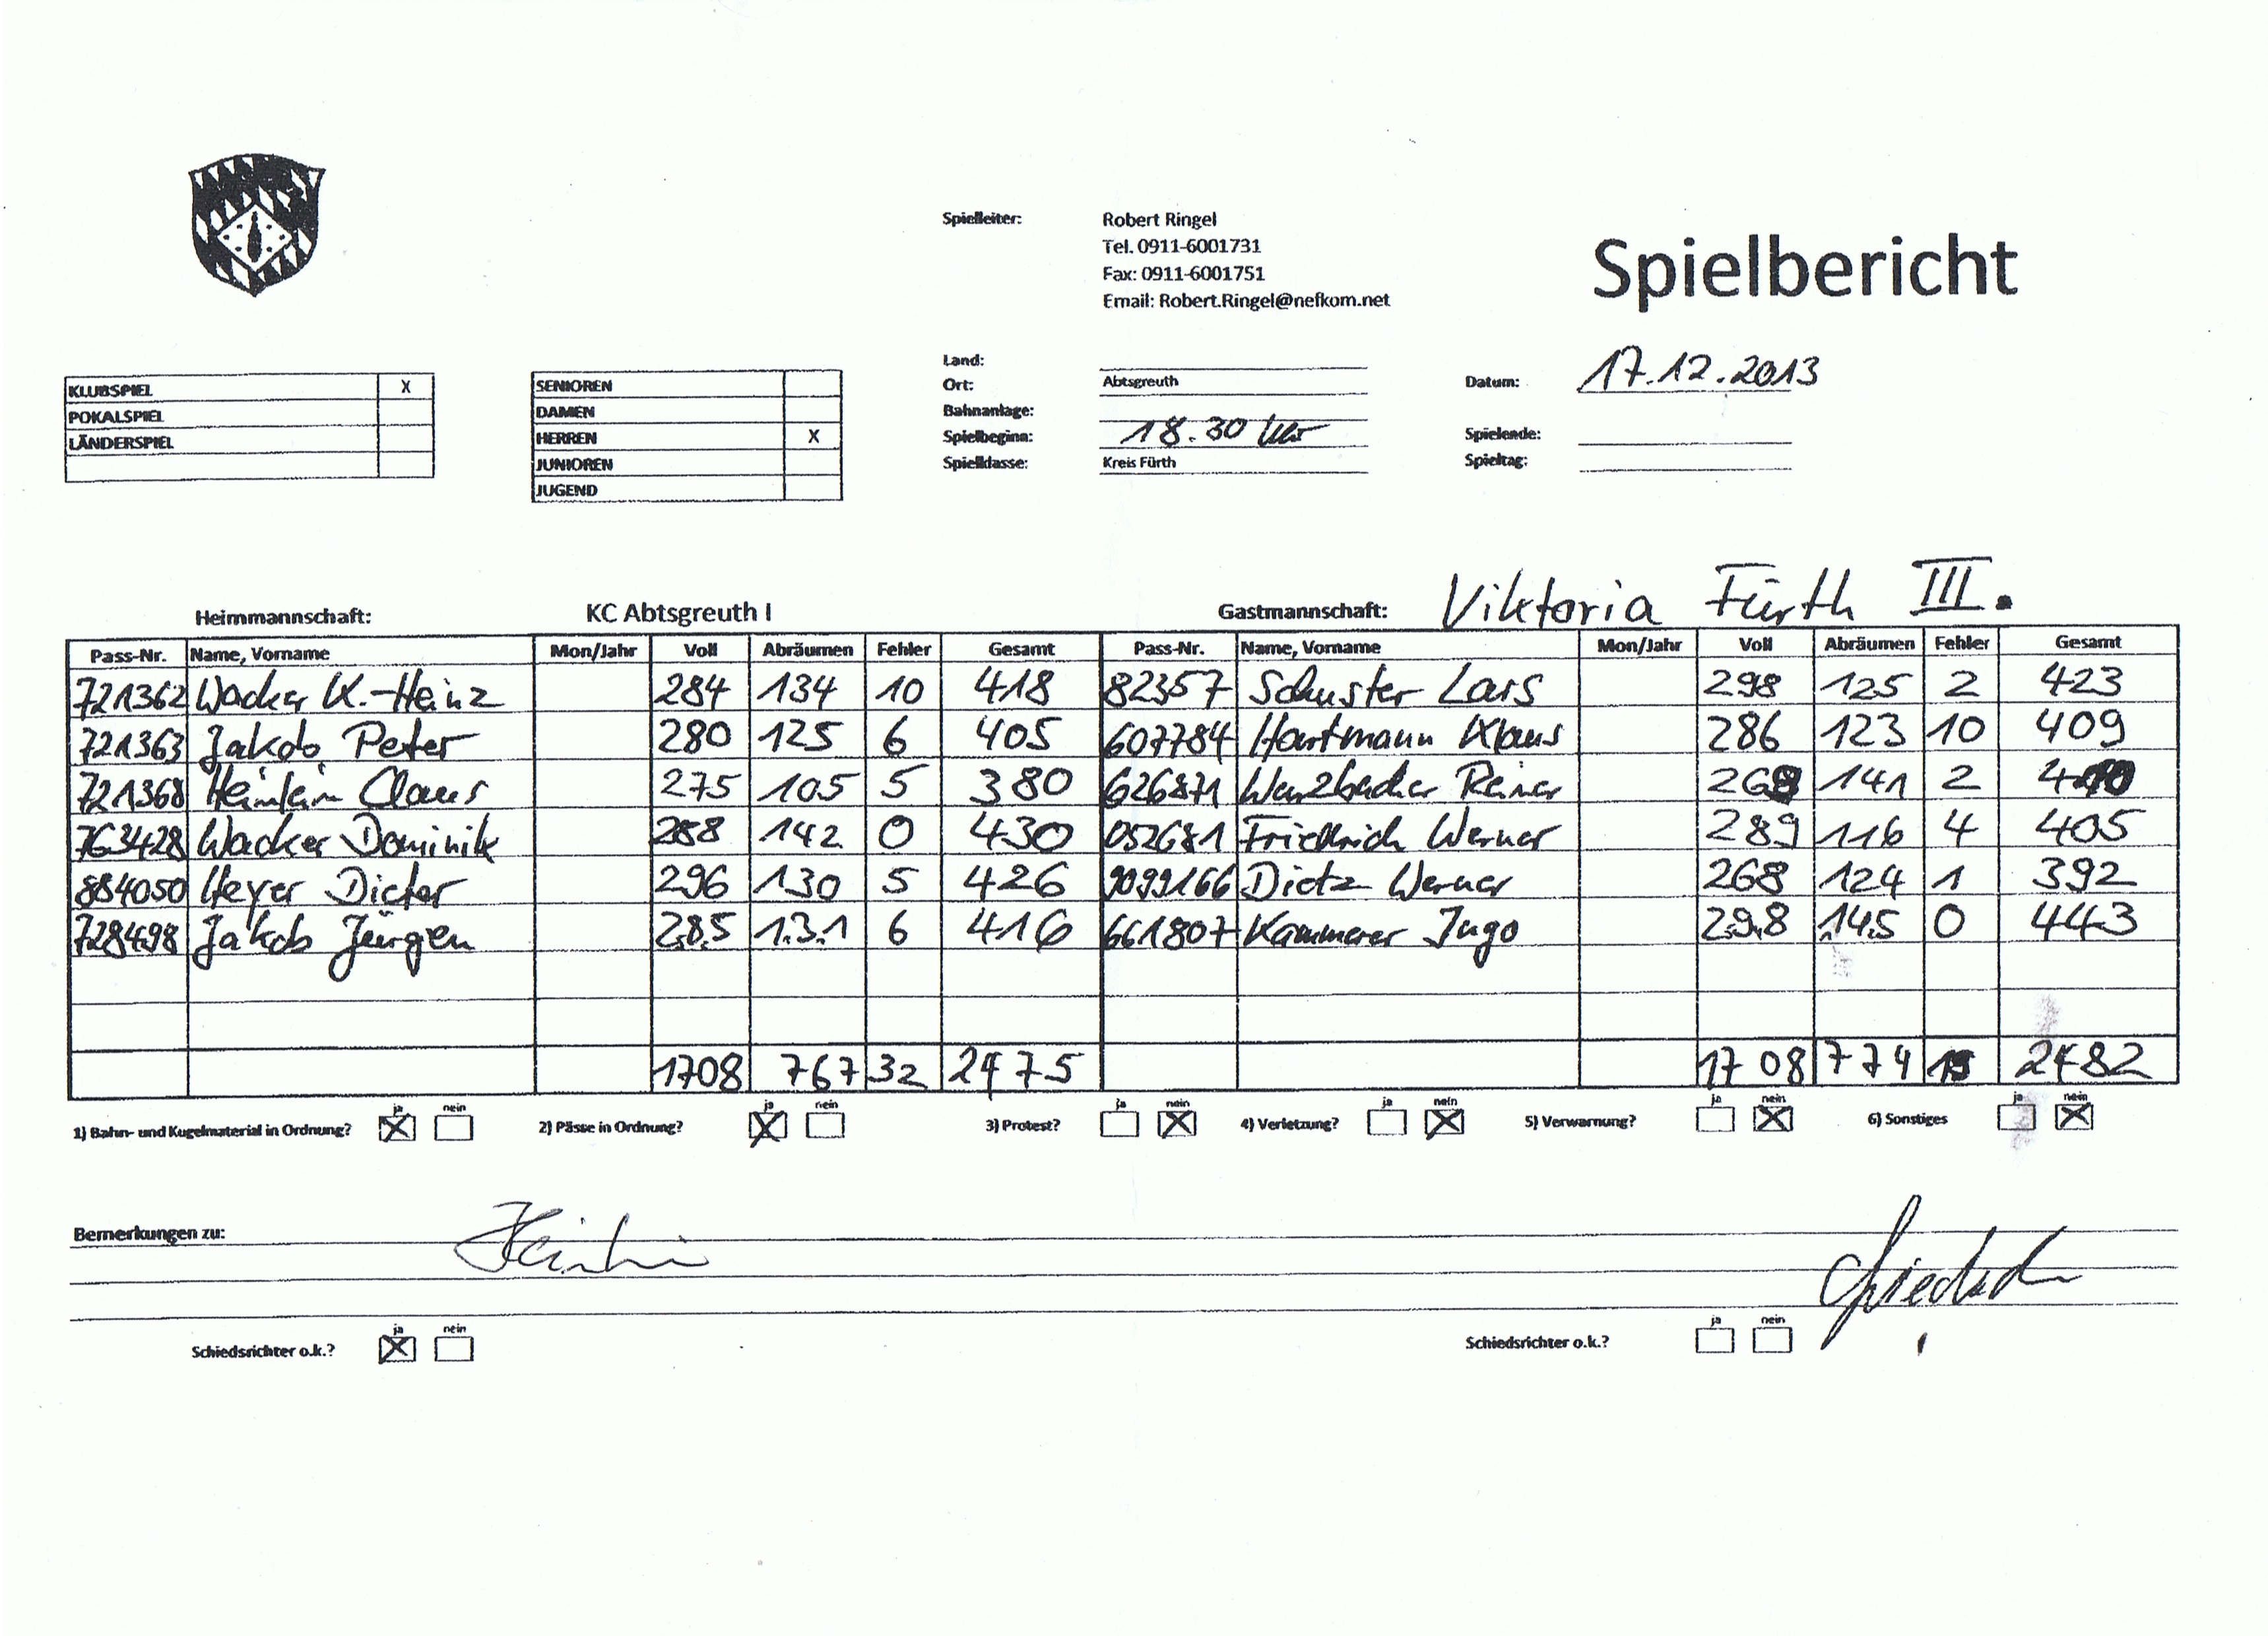 Spielleiter: Robert Ringel
Tel. 0911-6001731
Fax: 0911-6001751
Email: Robert.Ringel@nefkom.net
Spielbericht
KLUBSPIEL X
POKALSPIEL
LÄNDERSPIEL
SENIOREN
DAMEN
HERREN X
JUNIOREN
JUGEND
Land:
Ort: Abtsgreuth
Bahnanlage:
Spielbeginn: 18.30 Uhr
Spielklasse: Kreis Fürth
Datum: 17.12.2013
Spielende:
Spieltag:
Heimmannschaft: KC Abtsgreuth I Gastmannschaft: Viktoria Fürth III.
Pass-Nr. Name, Vorname Mon/Jahr Voll Abräumen Fehler Gesamt Pass-Nr. Name, Vorname Mon/Jahr Voll Abräumen Fehler Gesamt
721362 Wacker K.-Heinz 284 134 10 418 82357 Schuster Lars 298 125 2 423
721363 Jakob Peter 280 125 6 405 607784 Hartmann Klaus 286 123 10 409
721368 Heinlein Claus 275 105 5 380 626871 Reiner 269 141 2 410
763428 Wacker Dominik 288 142 0 430 052681 Friedrich Werner 289 116 4 405
884050 Heyer Dieter 296 130 5 426 9099166 Dietz Werner 268 124 1 392
728498 Jakob Jürgen 285 131 6 416 661807 Kammerer Ingo 298 145 0 443
1708 767 32 2475 1708 774 19 2482
1) Bahn- und Kugelmaterial in Ordnung? ja nein 2) Pässe in Ordnung? ja nein 3) Protest? ja nein 4) Verletzung? ja nein 5) Verwarnung? ja nein 6) Sonstiges ja nein
Bemerkungen zu:
Schiedsrichter o.k.? ja nein Schiedsrichter o.k.? ja nein